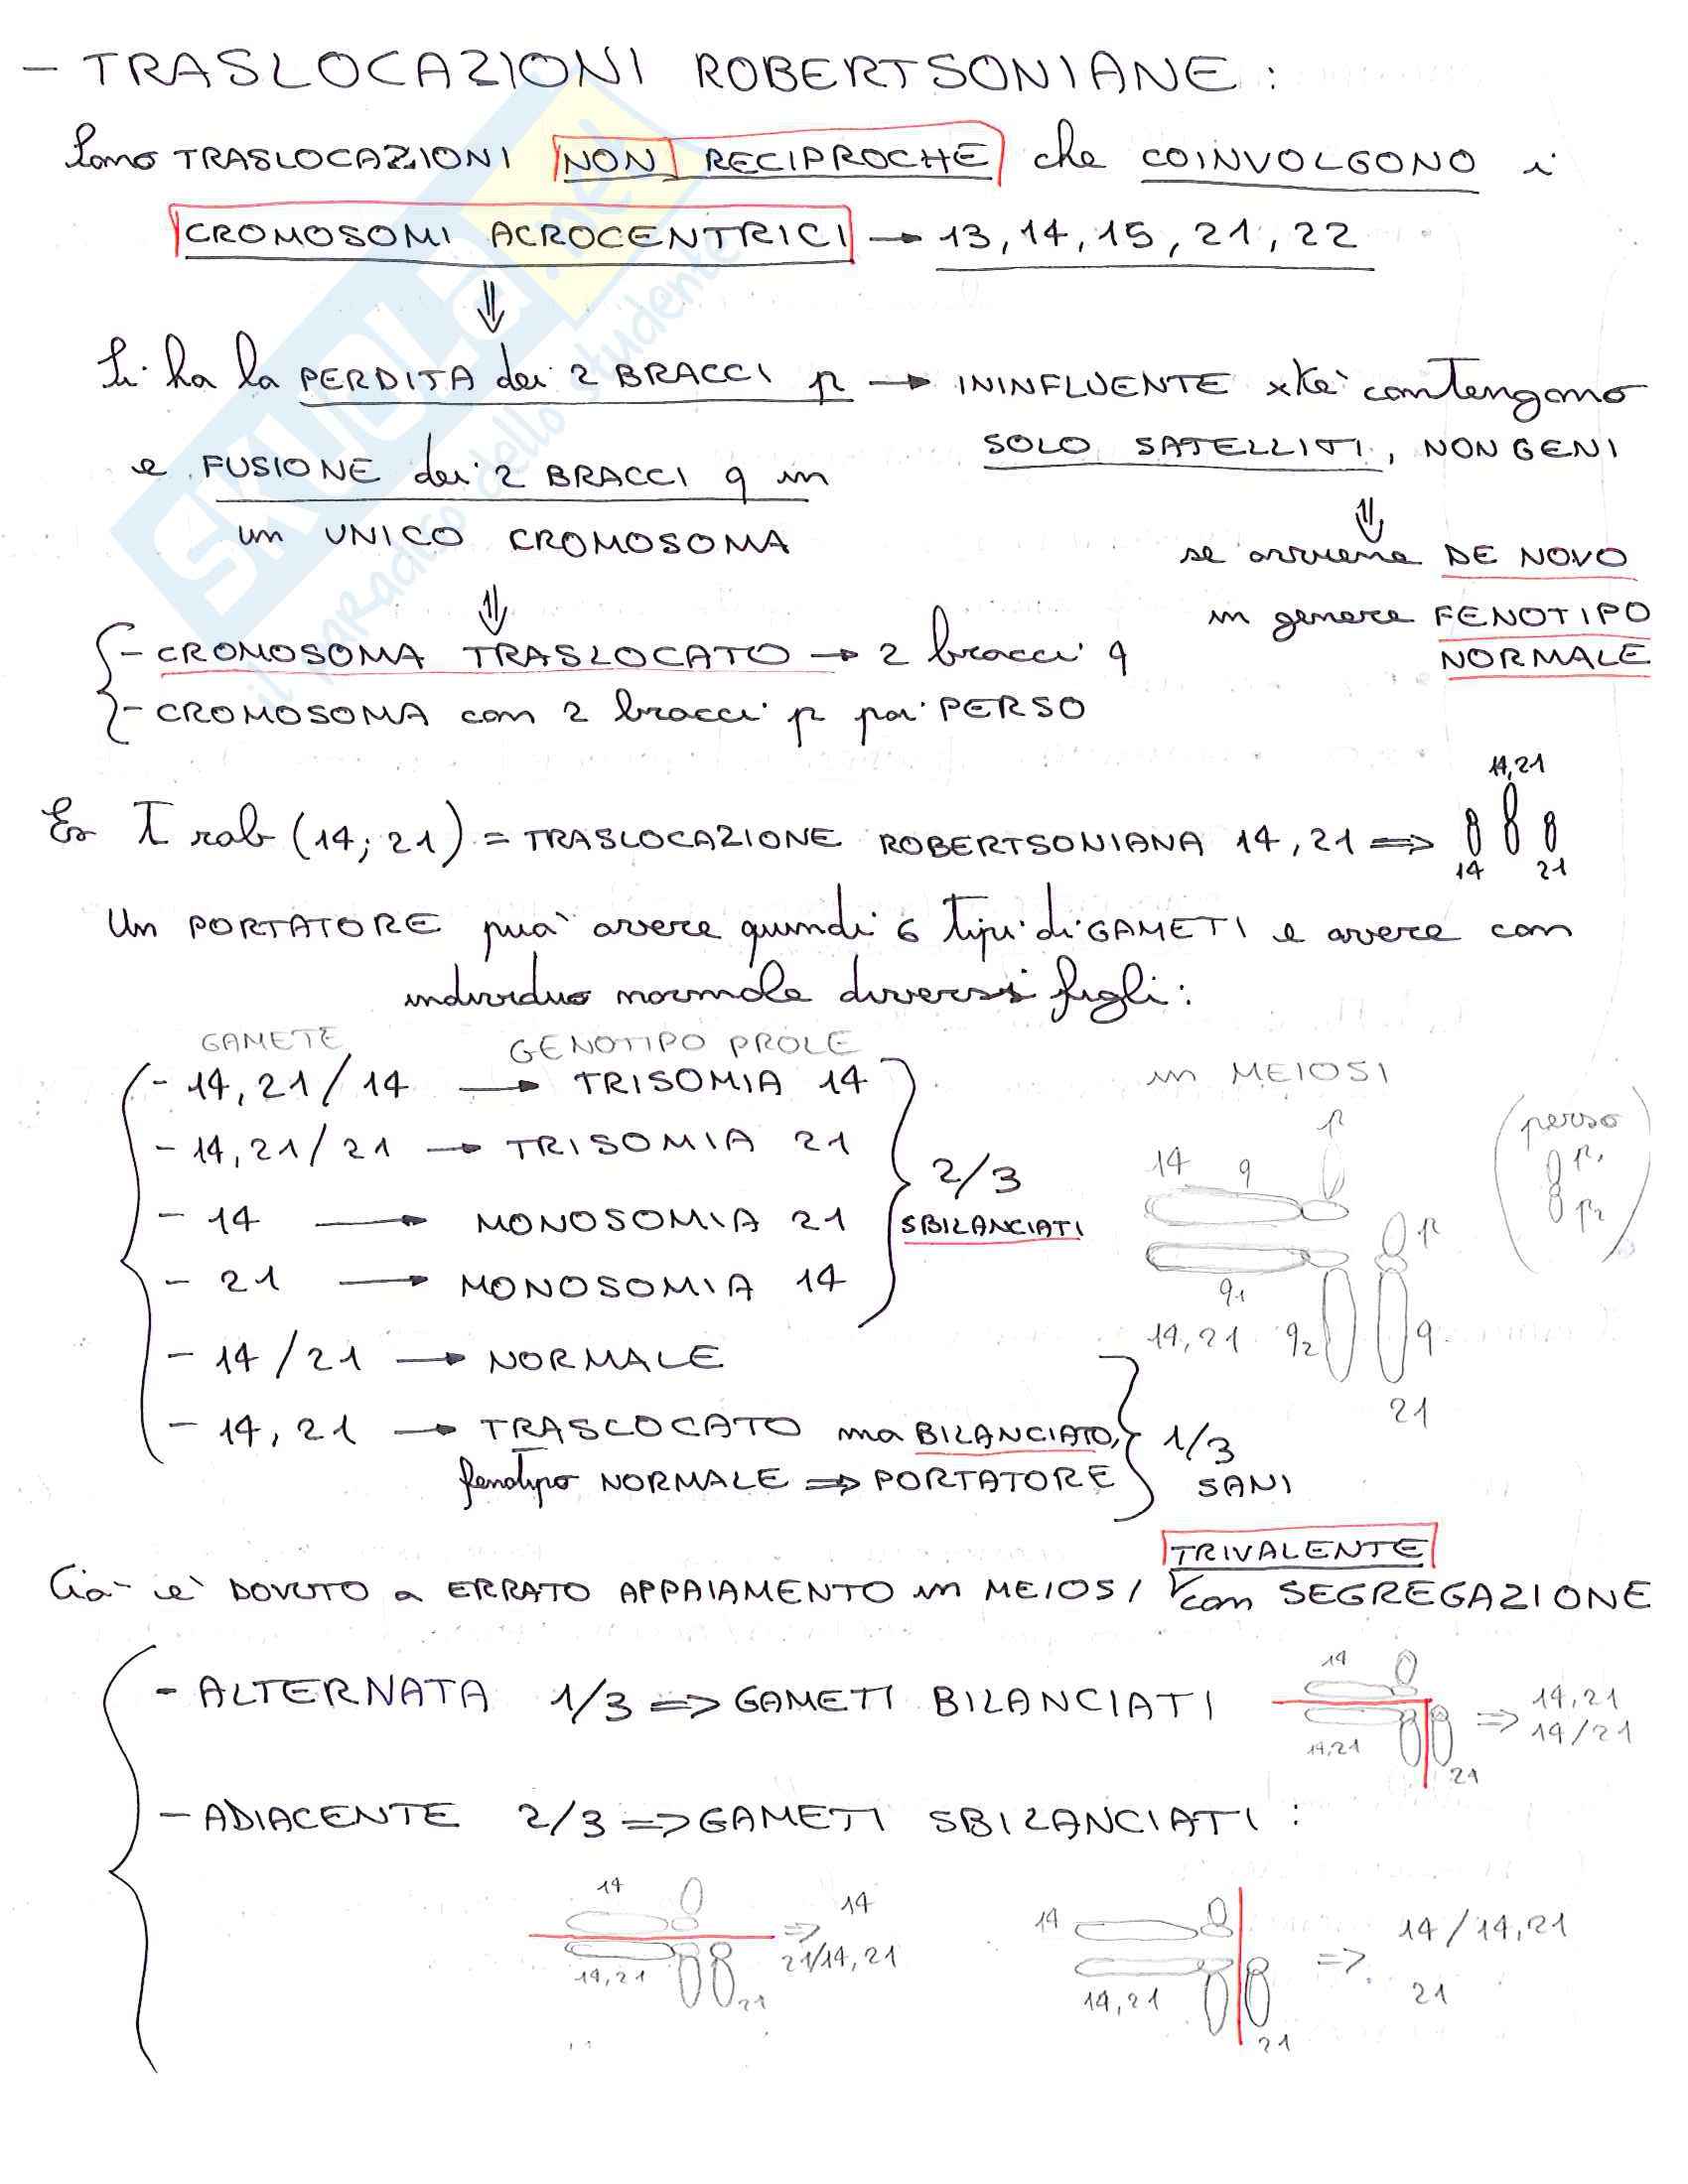 - TRASLOCAZIONI ROBERTSONIANE:
Sono TRASLOCAZIONI NON RECIPROCHE che COINVOLGONO i
CROMOSOMI ACROCENTRICI → 13, 14, 15, 21, 22
⇓
Si ha la PERDITA dei 2 BRACCI p → ININFLUENTE xkè contengono
SOLO SATELLITI, NON GENI
e FUSIONE dei 2 BRACCI q in
un UNICO CROMOSOMA
⇓
se avviene DE NOVO
in genere FENOTIPO
NORMALE
⇓
- CROMOSOMA TRASLOCATO → 2 bracci q
- CROMOSOMA con 2 bracci p poi PERSO
14,21
Es T rob (14; 21) = TRASLOCAZIONE ROBERTSONIANA 14, 21 ⇒
14 21
Un PORTATORE può avere quindi 6 tipi di GAMETI e avere con
individuo normale diversi figli:
GAMETE GENOTIPO PROLE
- 14, 21 / 14 → TRISOMIA 14
- 14, 21 / 21 → TRISOMIA 21
- 14 → MONOSOMIA 21
- 21 → MONOSOMIA 14
2/3
SBILANCIATI
- 14 / 21 → NORMALE
- 14, 21 → TRASLOCATO ma BILANCIATO,
fenotipo NORMALE ⇒ PORTATORE
1/3
SANI
in MEIOSI
p
14 q
p
q1
14, 21 q2 q
21
(perso
p1
p2)
TRIVALENTE
Ciò è DOVUTO a ERRATO APPAIAMENTO in MEIOSI con SEGREGAZIONE
- ALTERNATA 1/3 ⇒ GAMETI BILANCIATI
14
14,21
21
⇒ 14,21
14/21
- ADIACENTE 2/3 ⇒ GAMETI SBILANCIATI:
14
14,21
21
⇒ 14
21/14,21
14
14,21
21
⇒ 14/14,21
21
SKUOLA.net
il paradiso dello studente